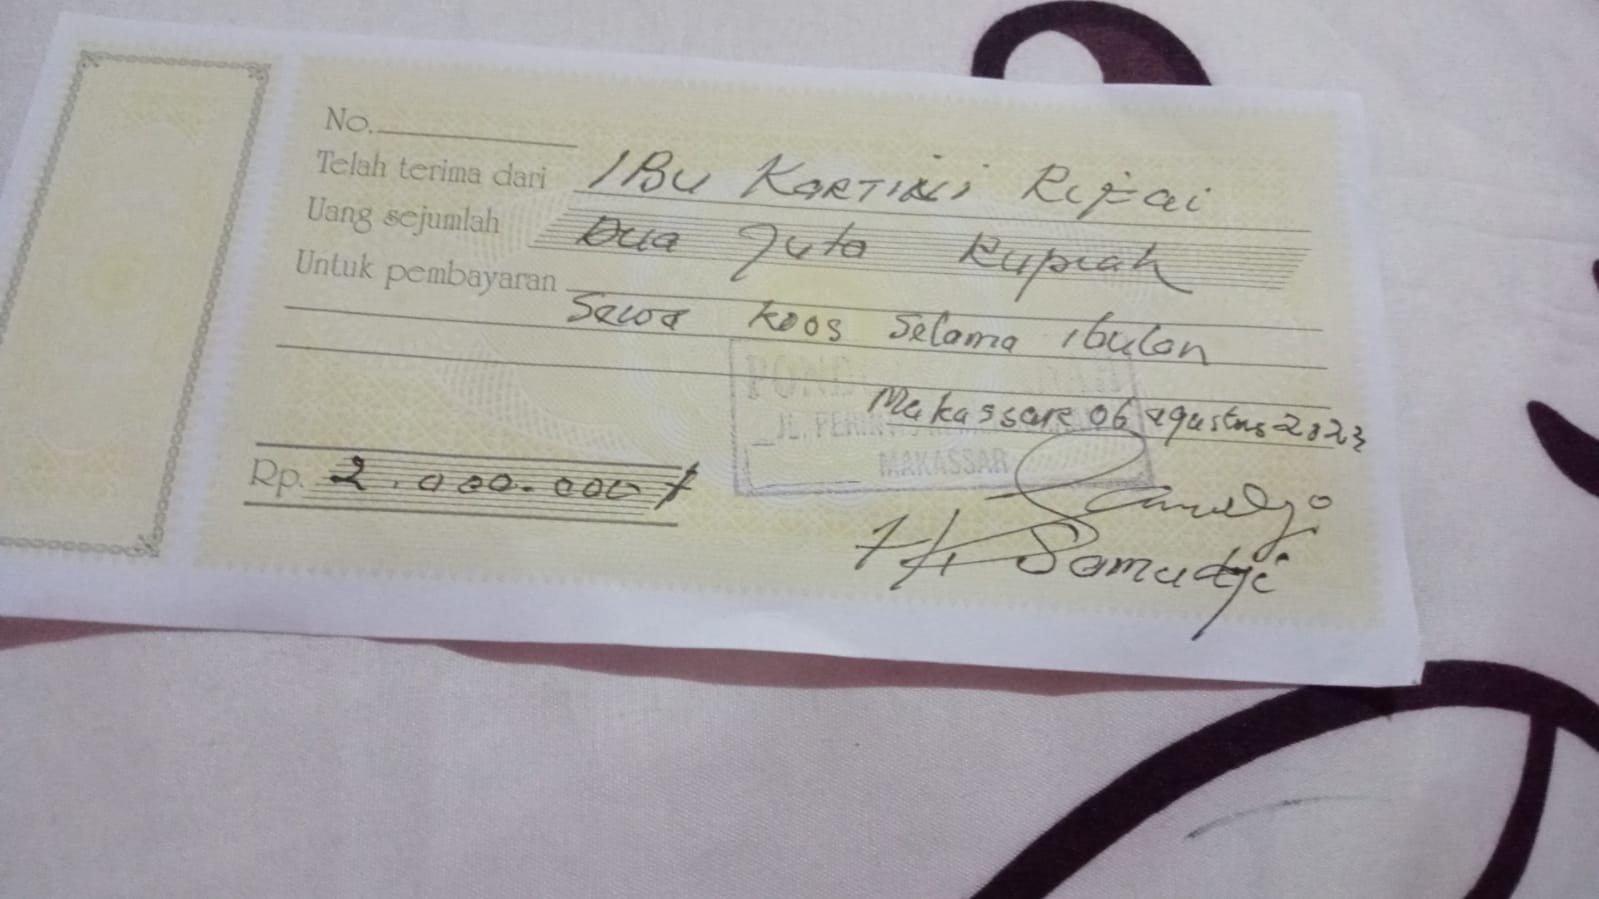 No.
Telah terima dari IBu KARTINI Rifai
Uang sejumlah Dua Juta Rupiah
Untuk pembayaran
Sewa koos selama 1bulan
Makassar 06 agustus 2023
JL.
MAKASSAR
Rp. 2.000.000
Samudji